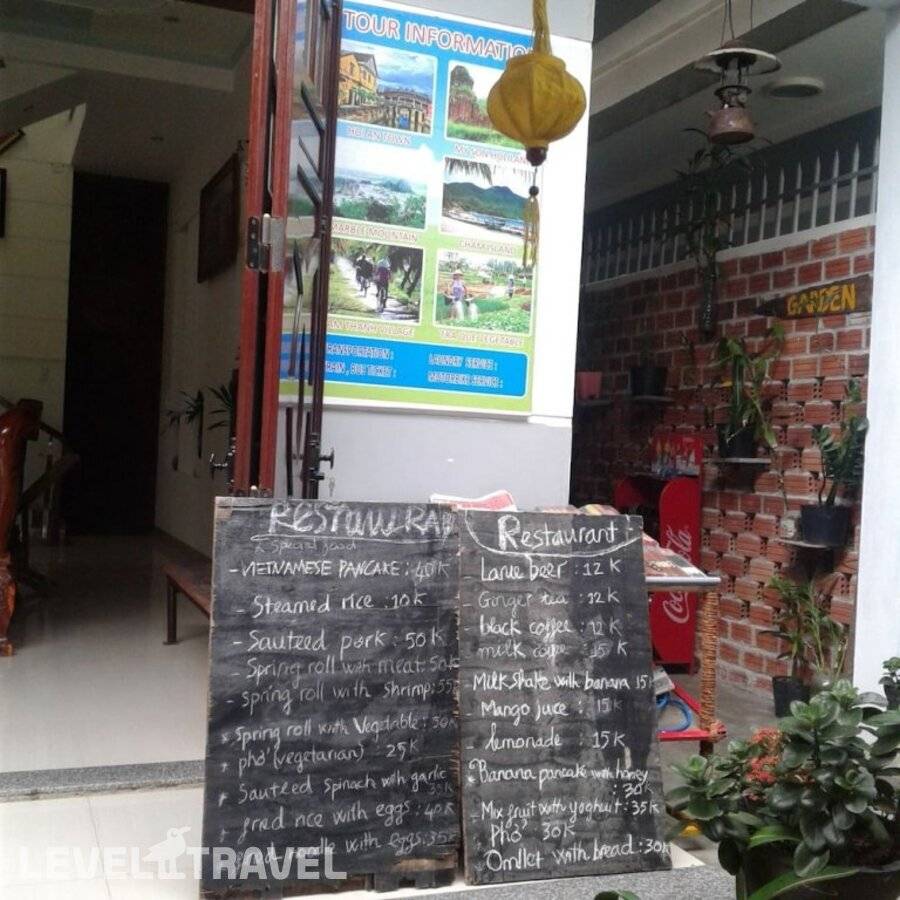 TOUR INFORMATION
HOI AN TOWN
MY SON HOLILAND
MARBLE MOUNTAIN
CHAM ISLAND
AM THANH VILLAGE
TRA QUE VEGETABLE
RANSPORTATION :
LAUNDRY SERVICE :
RAIN , BUS TICKET :
MOTORBIKE SERVICE :
GARDEN
Coca-Cola
RESTAURAN
Special food
- VIETNAMESE PANCAKE : 40K
- Steamed rice : 10K
- Sauteed pork : 50K
- Spring roll with meat: 50K
- spring roll with shrimp: 55
x Spring roll with Vegetable : 50K
x phở (vegetarian) : 25K
x Sauteed Spinach with garlic
35K
x fried rice with eggs : 40K
fried noodle with eggs: 35K
Restaurant
- Larue beer : 12K
- Ginger tea : 12K
- black coffee : 12K
milk coffee : 15K
- Milk shake with banana 15K
- Mango juice : 15K
- lemonade : 15K
Banana pancake with honey
: 30K
- Mix fruit with yoghurt : 35K
Phở 30K
Omllet with bread : 30K
LEVEL TRAVEL